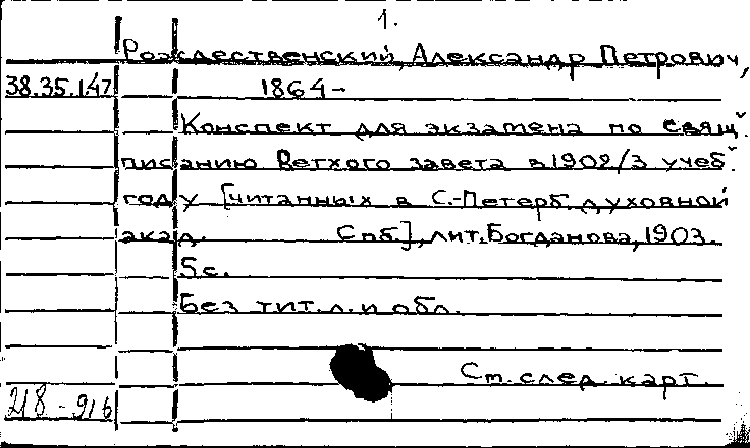 1.
Рождественский, Александр Петрович,
38.35.147 1864-
Конспект для экзамена по свящ.
писанию Ветхого завета в 1902/3 учеб.
году [читанных в С.-Петерб. духовной
акад. Спб.], лит. Богданова, 1903.
5 с.
Без тит. л. и обл.
Ст. след. карт.
218-916